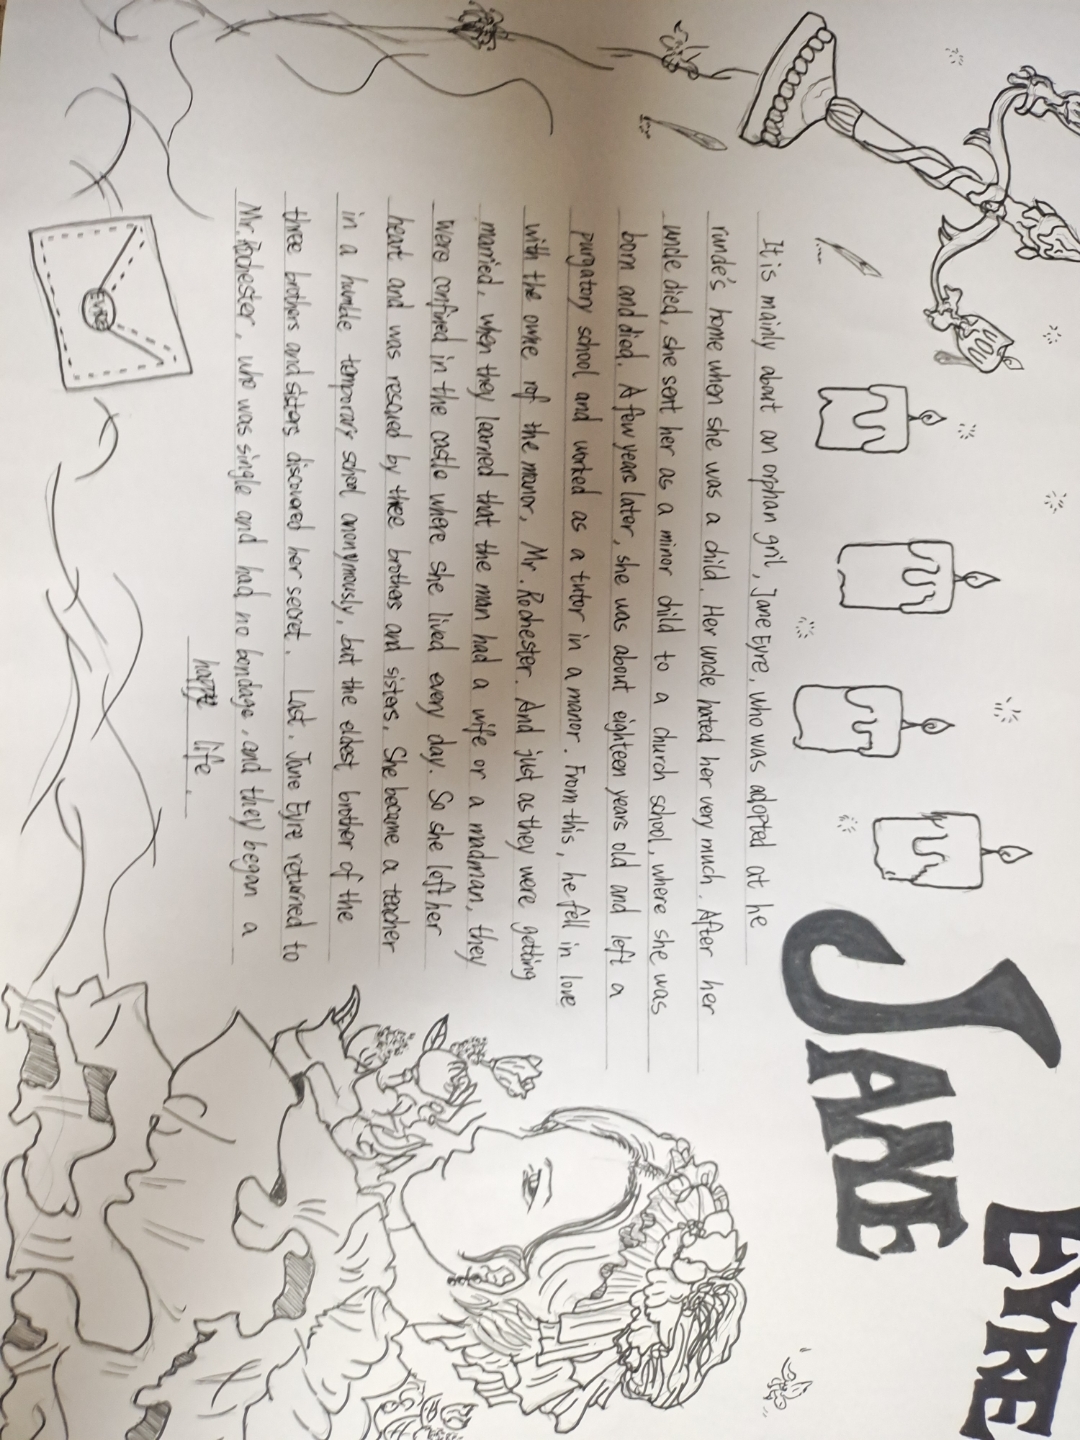 JANE
EYRE
It is mainly about an orphan gril, Jane Eyre, who was adopted at he
runde's home when she was a child. Her uncle hated her very much. After her
uncle died, she sent her as a minor child to a church school, where she was
born and died. A few years later, she was about eighteen years old and left a
purgatory school and worked as a tutor in a manor. From this, he fell in love
with the owne rof the manor, Mr. Rochester. And just as they were getting
married, when they learned that the man had a wife or a madman, they
were confined in the castle where she lived every day. So she left her
heart and was rescued by three brothers and sisters. She became a teacher
in a humble temporary school anonymously, but the eldest brother of the
three brothers and sisters discovered her secret. Last, Jane Eyre returned to
Mr. Rochester, who was single and had no bondage, and they began a
happy life.
EYRE